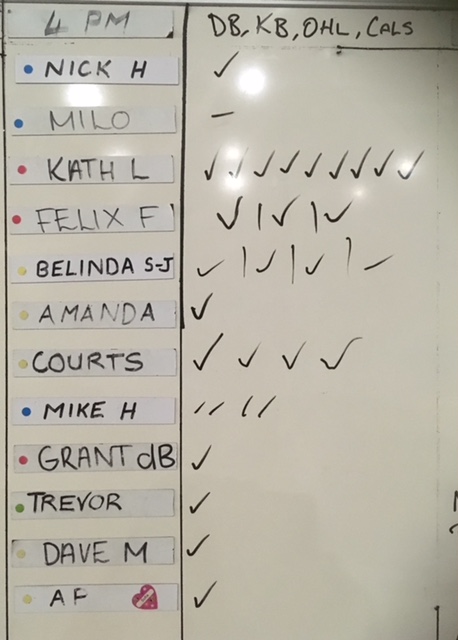 4 PM DB, KB, OHL, CALS
NICK H ✓
MILO –
KATH L ✓ ✓ ✓ ✓ ✓ ✓ ✓ ✓ ✓
FELIX F ✓ | ✓ | ✓
BELINDA S-J ✓ | ✓ | ✓ | –
AMANDA ✓
COURTS ✓ ✓ ✓ ✓
MIKE H // //
GRANT dB ✓
TREVOR ✓
DAVE M ✓
AF ✓